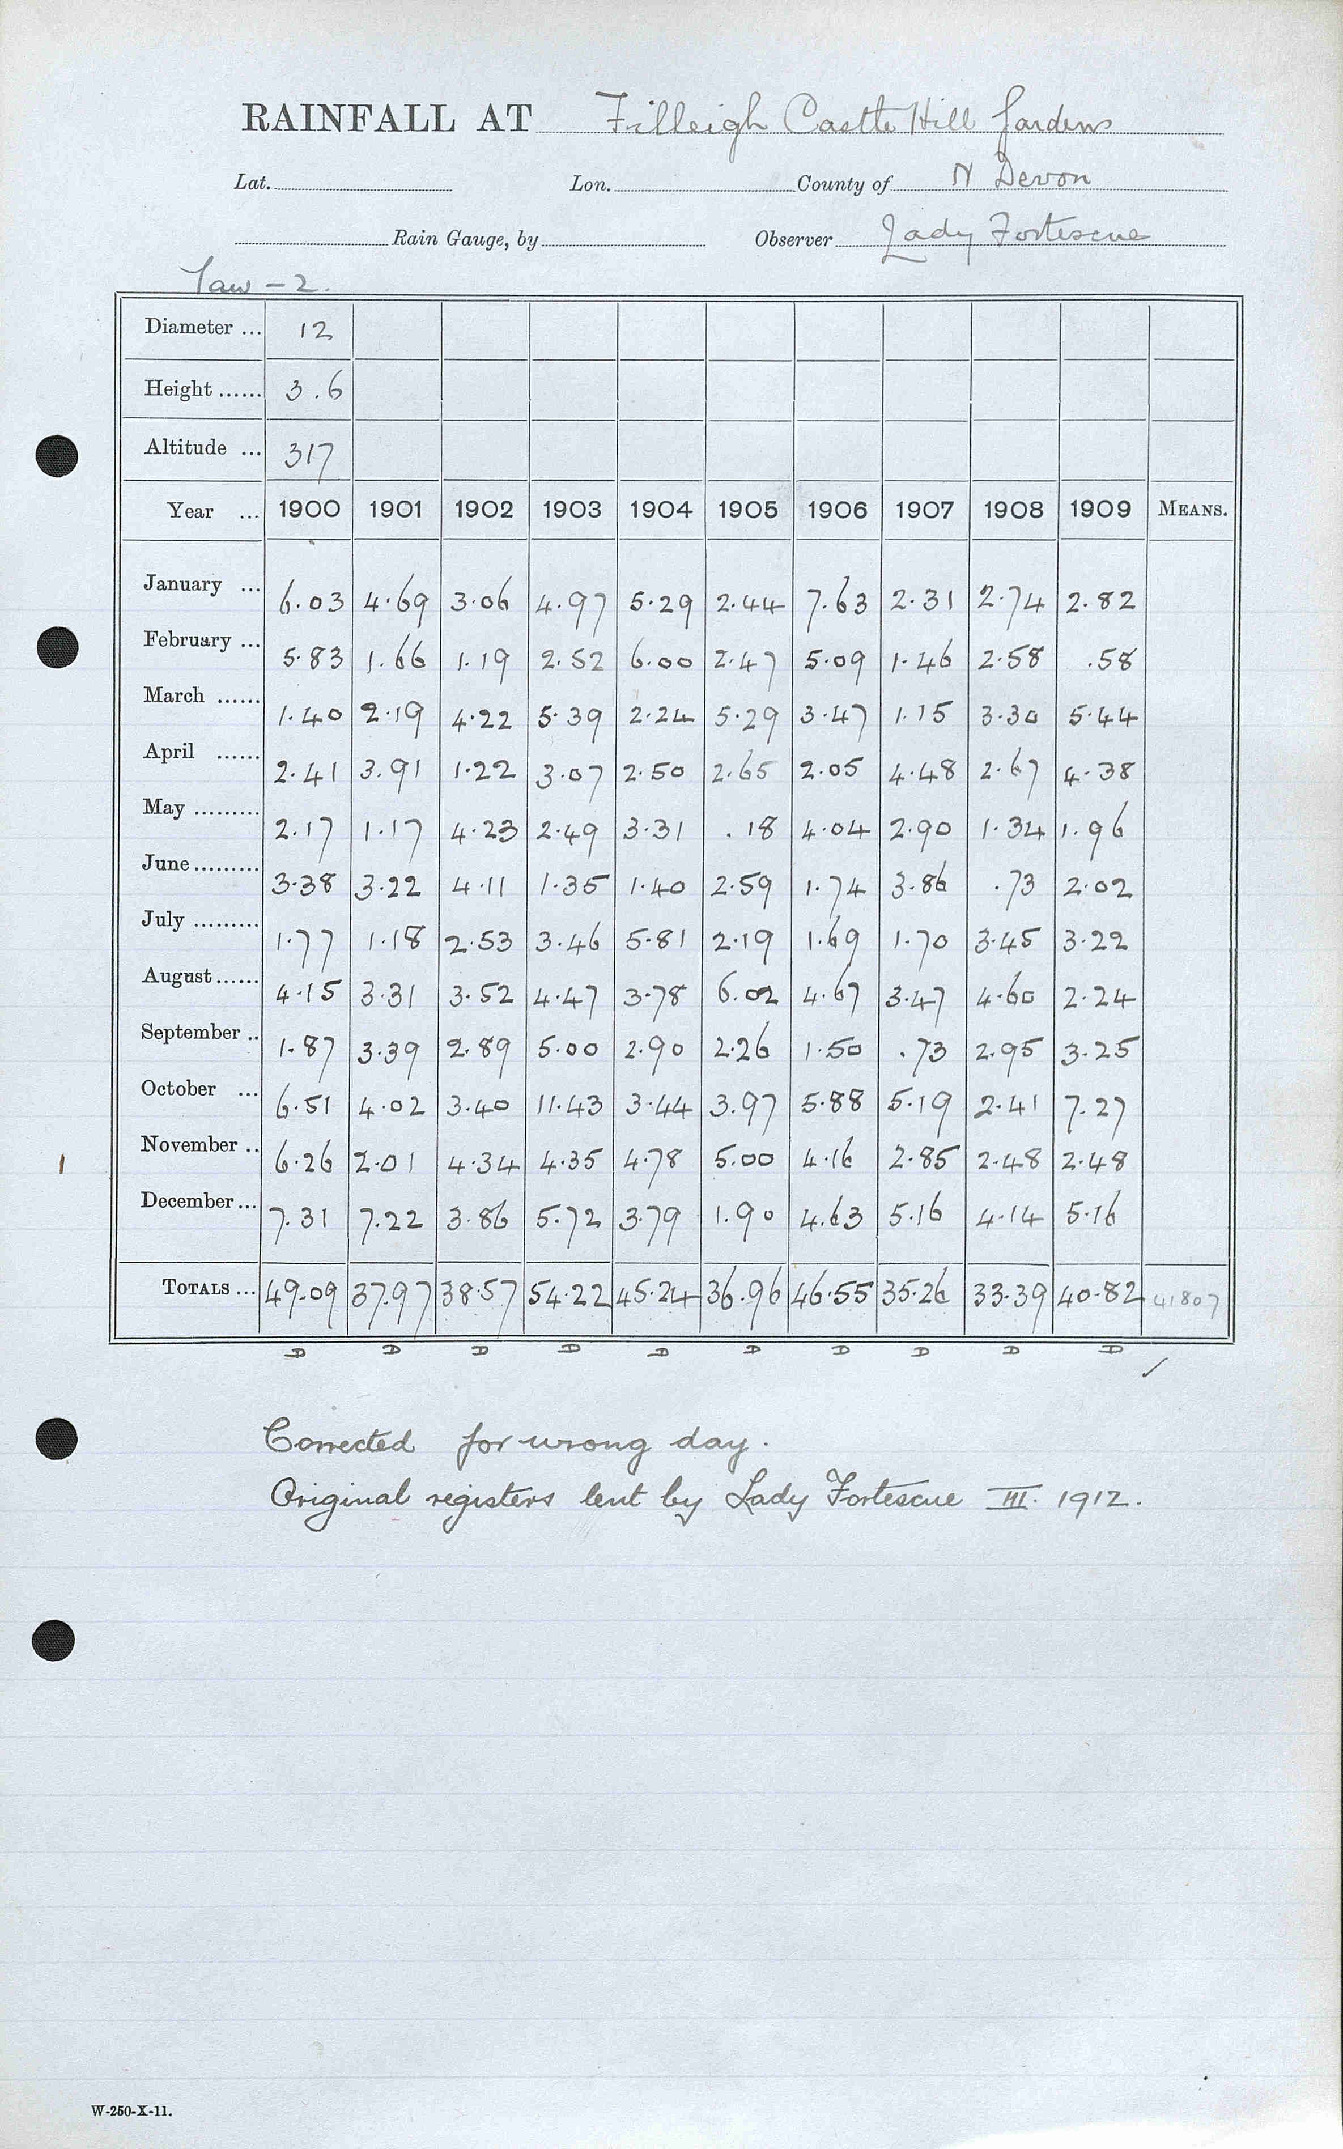 RAINFALL AT Filleigh Castle Hill Gardens
Lat. Lon. County of N Devon
Rain Gauge, by Observer Lady Fortescue
Taw - 2.
Diameter ... 12
Height ...... 3.6
Altitude ... 317
Year ... 1900 1901 1902 1903 1904 1905 1906 1907 1908 1909 MEANS.
January ... 6.03 4.69 3.06 4.97 5.29 2.44 7.63 2.31 2.74 2.82
February ... 5.83 1.66 1.19 2.52 6.00 2.47 5.09 1.46 2.58 .58
March ...... 1.40 2.19 4.22 5.39 2.24 5.29 3.47 1.15 3.30 5.44
April ...... 2.41 3.91 1.22 3.07 2.50 2.65 2.05 4.48 2.67 4.38
May ......... 2.17 1.17 4.23 2.49 3.31 .18 4.04 2.90 1.34 1.96
June ......... 3.38 3.22 4.11 1.35 1.40 2.59 1.74 3.86 .73 2.02
July ......... 1.77 1.18 2.53 3.46 5.81 2.19 1.69 1.70 3.45 3.22
August ...... 4.15 3.31 3.52 4.47 3.78 6.02 4.67 3.47 4.60 2.24
September .. 1.87 3.39 2.89 5.00 2.90 2.26 1.50 .73 2.95 3.25
October ... 6.51 4.02 3.40 11.43 3.44 3.97 5.88 5.19 2.41 7.27
November .. 6.26 2.01 4.34 4.35 4.78 5.00 4.16 2.85 2.48 2.48
December ... 7.31 7.22 3.86 5.72 3.79 1.90 4.63 5.16 4.14 5.16
TOTALS ... 49.09 37.97 38.57 54.22 45.24 36.96 46.55 35.26 33.39 40.82 41807
D D D D D D D D D D
Corrected for wrong day.
Original registers lent by Lady Fortescue III. 1912.
W-250-X-11.